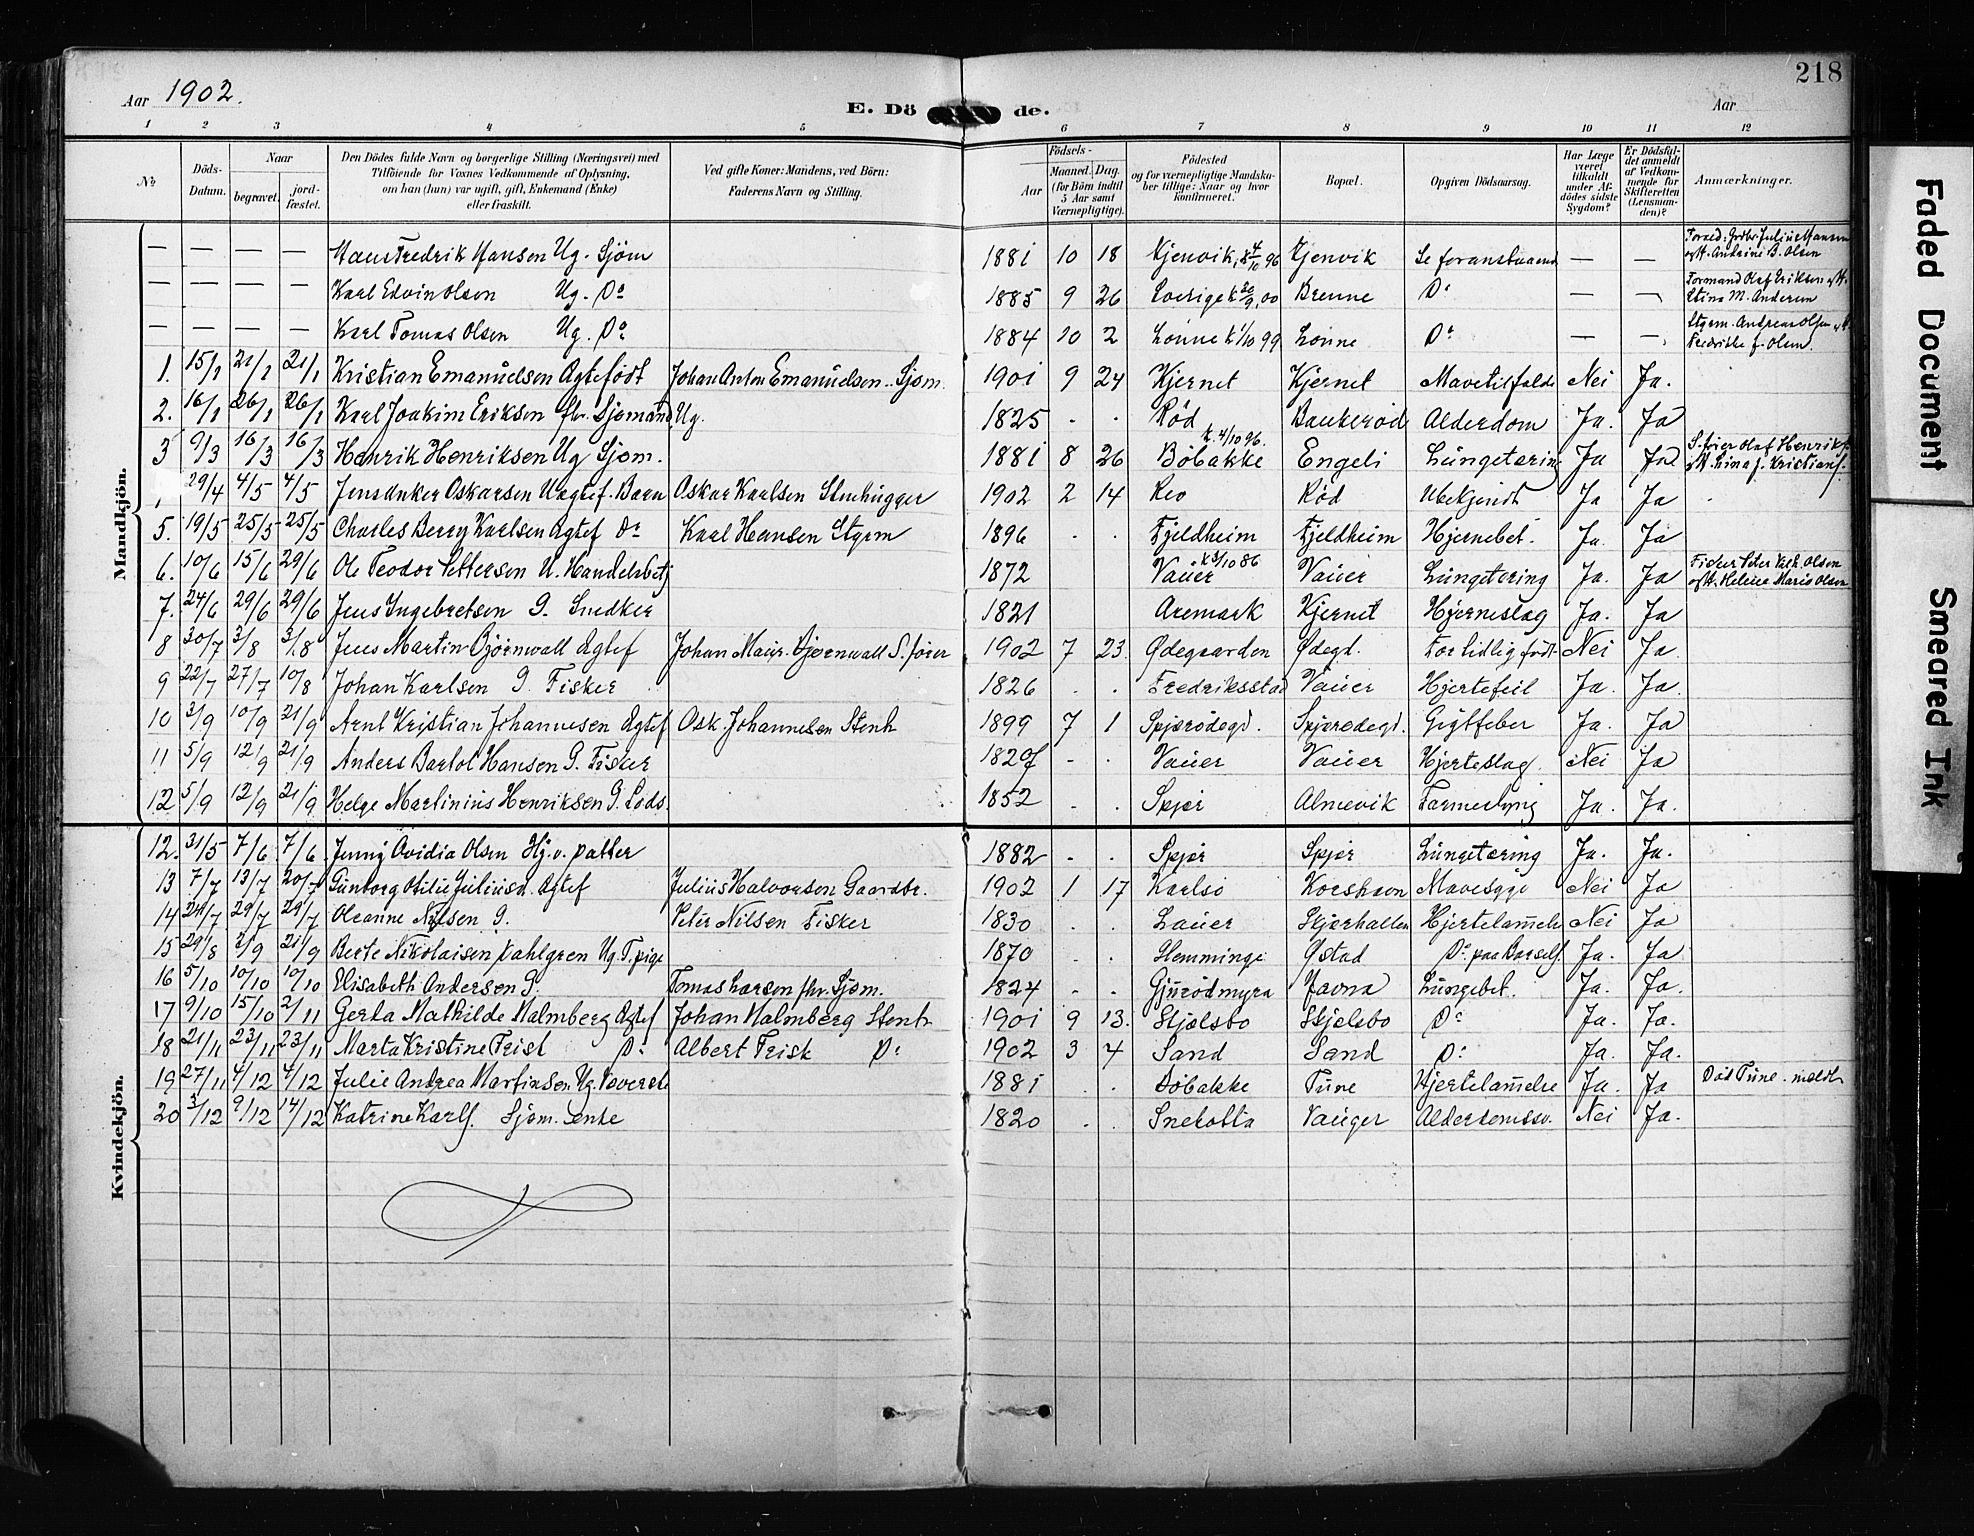 218
Aar 1902. E. Dö de. Aar
1 2 3 4 5 6 7 8 9 10 11 12
No. Döds-Datum. Naar begravet. jord-fæstet. Den Dödes fulde Navn og borgerlige Stilling (Næringsvei) med Tilföiende for Voxnes Vedkommende af Oplysning, om han (hun) var ugift, gift, Enkemand (Enke) eller fraskilt. Ved gifte Koner: Mandens, ved Börn: Faderens Navn og Stilling. Födsels- Aar Maaned. Dag. (for Börn indtil 5 Aar samt Værnepligtige). Födested og for værnepligtige Mandskaber tillige: Naar og hvor konfirmeret. Bopæl. Opgiven Dödsaarsag. Har Læge været tilkaldt under Afdödes sidste Sygdom? Er Dödsfaldet anmeldt af Vedkommende for Skifteretten (Lensmanden)? Anmærkninger.
Mandkjön.
— — — — Hans Fredrik Hansen Ug. Sjøm 1881 10 18 Kjenvik, k 4/10 96 Kjenvik Se foranstaaend — — Foræld: Grdbr. Julius Hansen og H. Andrine B. Olsen
— — — — Karl Edvin Olsen Ug. Do 1885 9 26 Sverige k 30/9 00 Brenne Do — — Formand Olaf Eriksen og H. Stina M. Andersen
— — — — Karl Tomas Olsen Ug. Do 1884 10 2 Lønne k 1/10 99 Lønne Do — — Styrm. Andreas Olsen og H. Fredrikke J. Olsen.
1. 15/1 21/1 21/1 Kristian Emanuelsen Ægtefødt Johan Anton Emanuelsen. Sjøm. 1901 9 24 Kjernet Kjernet Mavetilfælde Nei Ja.
2. 16/1 26/1 26/1 Karl Joakim Eriksen fhv. Sjømand Ug. 1825 . . Rød Bankerød Alderdom Ja. Ja
3 9/3 16/3 16/3 Henrik Henriksen Ug Sjøm. 1881 8 26 k. 4/10 96. Bøbakke Engeli Lungetæring Ja Ja S. fører Olaf Henriks. og H. Lina J. Kristians.
29/4 4/5 4/5 Jens Anker Oskarsen Uægtef. Barn Oskar Karlsen Stenhugger 1902 2 14 Reo Rød Ubekjendt Ja Ja
5. 19/5 25/5 25/5 Charles Berry Karlsen Ægtef Do Karl Hansen Styrm 1896 . . Fjeldheim Fjeldheim Hjernebet. Ja. Ja
6. 10/6 15/6 29/6 Ole Teodor Pettersen U. Handelsbetj 1872 k 3/10 86 Vauer Vauer Lungetæring Ja. Ja Fisker Peter Olsen og H. Helene Marie Olsen
7. 24/6 29/6 29/6 Jens Ingebretsen G. Snedker 1821 Aremark Kjernet Hjerneslag Ja. Ja
8 30/7 3/8 3/8 Jens Martin Bjørnwall Ægtef Johan Maur. Bjørnwall S. fører 1902 7 23. Ødegaarden Ødegd. For tidlig født Nei Ja.
9 22/7 27/7 10/8 Johan Karlsen G. Fisker 1826 . . Fredriksstad Vauer Hjertefeil Ja. Ja.
10 3/9 10/9 21/9 Arnt Kristian Johannesen Ægtef Osk. Johannesen Stenh 1899 7 1 Spjærødegd. Spjærødegd. Gigtfeber Ja. Ja
11 5/9 12/9 21/9 Anders Bartol Hansen G. Fisker 1829 - . Vauer Vauer Hjerteslag. Nei Ja
12 5/9 12/9 21/9 Helge Martinius Henriksen G. Lods. 1852 . . Spjær Almevik Tarmeslyng Ja. Ja.
Kvindekjön.
12. 31/5 7/6 7/6 Jenny Ovidia Olsen Hj. v. datter 1882 - . Spjær Spjær Lungetæring Ja. Ja.
13 7/7 13/7 20/7 Gunborg Otilie Juliusd. Ægtef Julius Halvorsen Gaardbr. 1902 1 17 Karlsø Korshavn Mavesyge Nei Ja
14 24/7 29/7 29/7 Oleanne Nilsen G. Peter Nilsen Fisker 1830 . . Lauer Skjærhallen Hjertelammelse Nei Ja
15 29/8 2/9 21/9 Berte Nikolaisen Dahlgren Ug. T. pige 1870 . . Hemminge Østad Do. paa Barsels. Ja. Ja
16 5/10 10/10 10/10 Elisabeth Andersen G. Tomas Larsen fhv. Sjøm. 1824 - . Gjurødmyra Havna Lungebet. Ja. Ja.
17 9/10 15/10 2/11 Gerda Mathilde Malmberg Ægtef Johan Malmberg Stenh 1901 9 13. Skjelsbo Skjelsbo Do Ja. Ja.
18 21/11 23/11 23/11 Marta Kristine Frisk Do Albert Frisk Do 1902 3 4 Sand Sand Do Ja. Ja.
19 27/11 4/12 4/12 Julie Andrea Martinsen Ug. Væverske 1881 . . Bøbakke Tune Hjertelammelse Ja. Ja Død Tune. meldt
20 3/12 9/12 14/12 Katrine Karls. Sjøm. enke 1820 . . Snekotta Vauger Alderdomssv. Nei Ja.
Faded Document
Smeared Ink